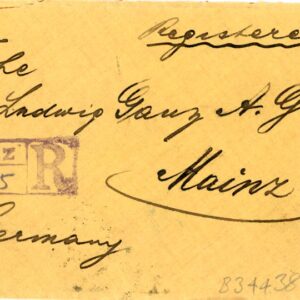 Registere
The
Ludwig Ganz A. G
Z
5 R
Mainz
Germany
834438